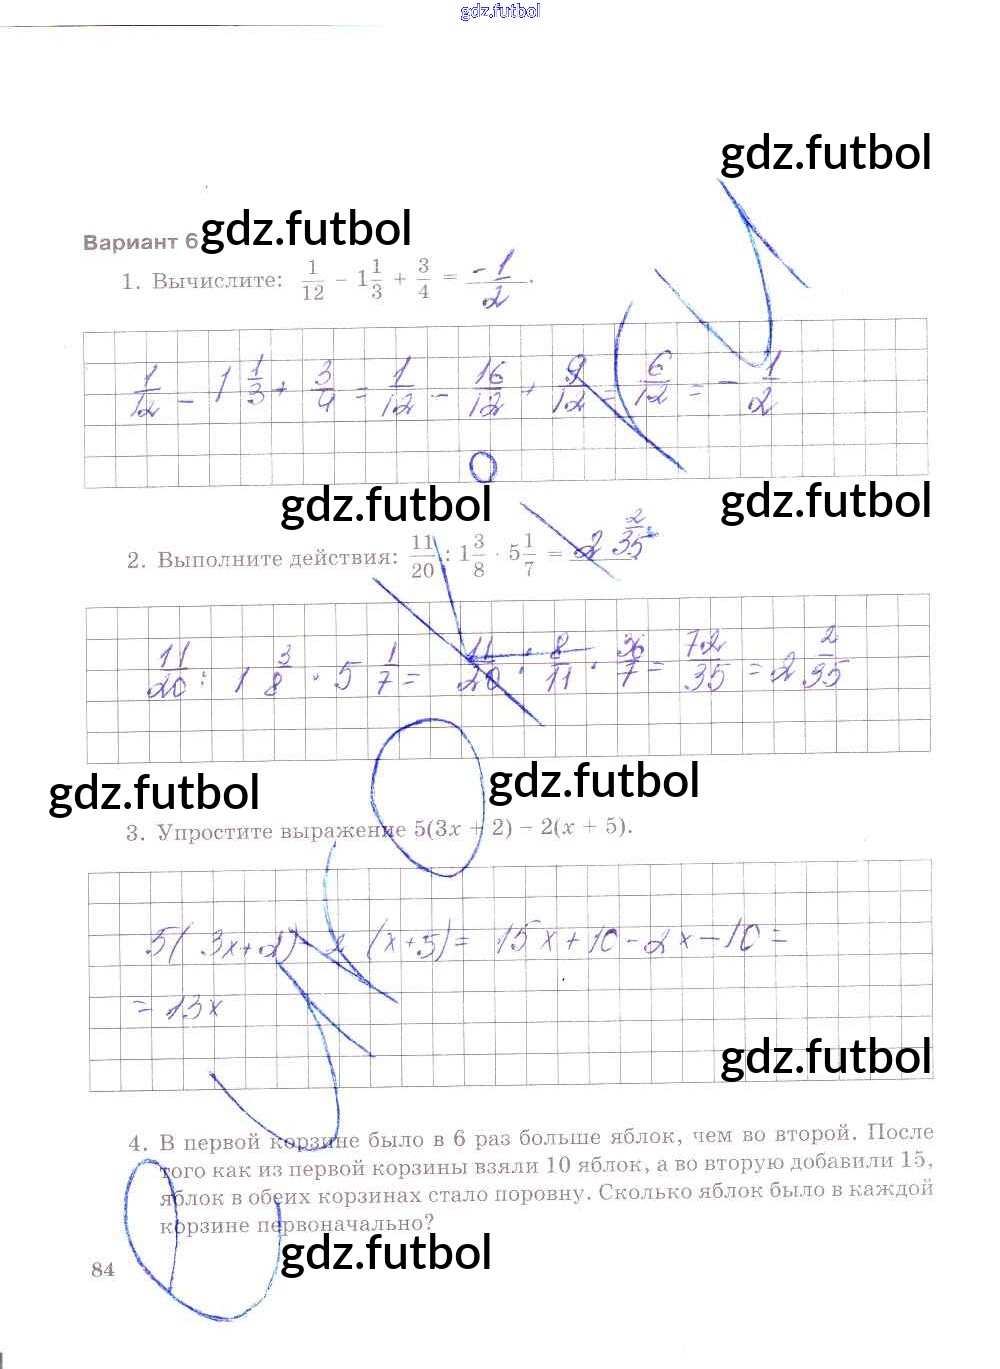 gdz.futbol
gdz.futbol
Вариант 6 gdz.futbol
1. Вычислите: 1/12 − 1 1/3 + 3/4 = −1/2.
1/12 − 1 1/3 + 3/4 = 1/12 − 16/12 + 9/12 = 6/12 = − 1/2
gdz.futbol gdz.futbol
2. Выполните действия: 11/20 : 1 3/8 · 5 1/7 = 2 2/35
11/20 : 1 3/8 · 5 1/7 = 11/20 · 8/11 · 36/7 = 72/35 = 2 2/35
gdz.futbol gdz.futbol
3. Упростите выражение 5(3x + 2) − 2(x + 5).
5(3x+2) − 2 (x+5) = 15x+10−2x−10=
= 13x
gdz.futbol
4. В первой корзине было в 6 раз больше яблок, чем во второй. После
того как из первой корзины взяли 10 яблок, а во вторую добавили 15,
яблок в обеих корзинах стало поровну. Сколько яблок было в каждой
корзине первоначально?
gdz.futbol
84